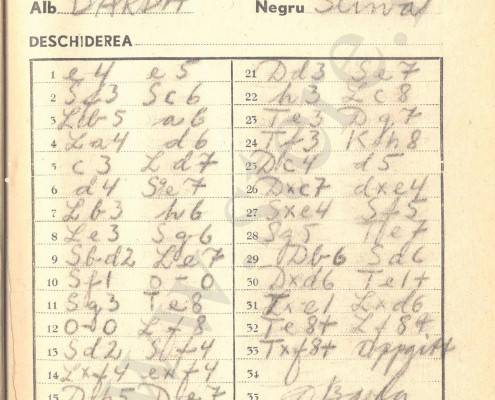 Alb BARDA Negru
DESCHIDEREA
1 e4 e5
2 Sf3 Sc6
3 Lb5 a6
4 La4 d6
5 c3 Ld7
6 d4 Sge7
7 Lb3 h6
8 Le3 Sg6
9 Sbd2 Le7
10 Sf1 0-0
11 Sg3 Te8
12 0-0 Lf8
13 Sd2 Sf4
14 Lxf4 exf4
15 Dh5 De7
21 Dd3 Se7
22 h3 Lc8
23 Te3 Dg7
24 Tf3 Kh8
25 Dc4 d5
26 Dxc7 dxe4
27 Sxe4 Sf5
28 Sg5 Te7
29 Db6 Sd6
30 Dxd6 Te1+
31 Txe1 Lxd6
32 Te8+ Lf8+
33 Txf8+ oppgitt
34
35